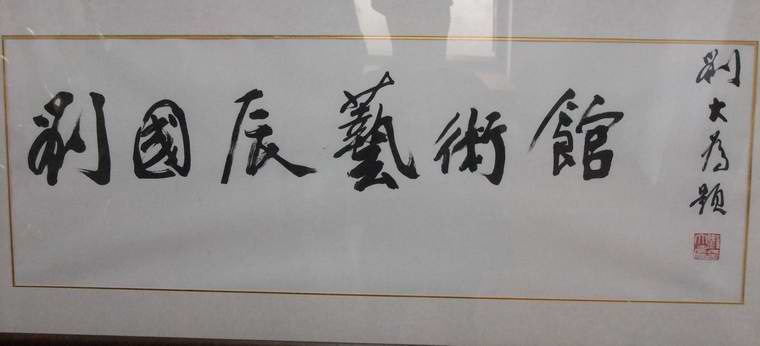 劉國辰藝術館
劉大為題